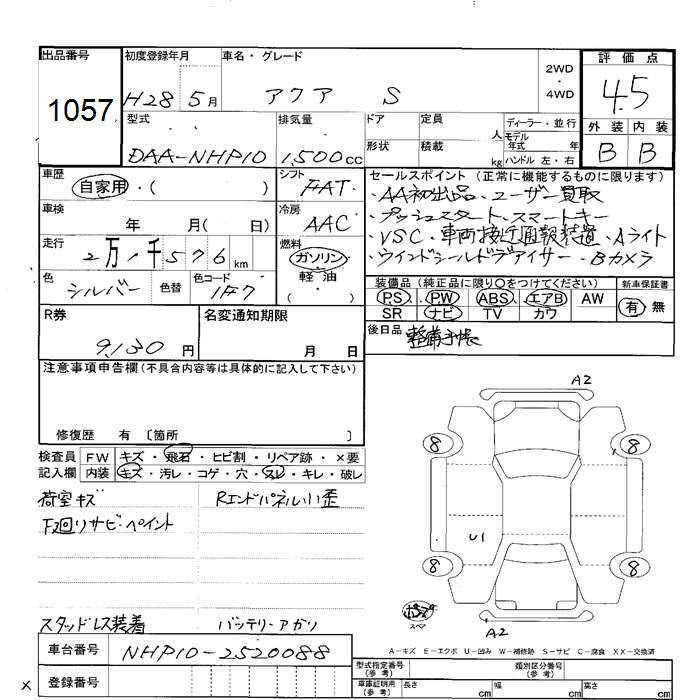 出品番号
1057
初度登録年月
H28 5月
車名・グレード
アクア S
2WD
・
4WD
評価点
4.5
外装 内装
B B
型式
DAA-NHP10
排気量
1,500cc
ドア
定員
人
ディーラー・並行
モデル
年式 年
形状
積載
kg
ハンドル 左・右
車歴
自家用・( )
シフト
FAT
セールスポイント (正常に機能するものに限ります)
・AA初出品、ユーザー買取
・プッシュスタート、スマートキー
・VSC、車両接近通報装置、Aライト
・ウインドシールドデアイサー・Bカメラ
車検
年 月( 日)
冷房
AAC
走行
2万1千576km
燃料
ガソリン
・
軽油
( )
色
シルバー
色替
色コード
1F7
装備品 (純正品に限り○をつけてください)
新車保証書
PS PW ABS エアB AW
SR ナビ TV カワ
有 無
R券
9,130円
名変通知期限
月 日
後日品
整備手帳
注意事項申告欄(不具合内容等は具体的に記入して下さい)
修復歴 有 〔箇所 〕
検査員
記入欄
FW キズ・飛石・ヒビ割・リペア跡・×要
内装 キズ・汚レ・コゲ・穴・スレ・キレ・破レ
荷室キズ
Rエンドパネル小歪
F廻リサビ・ペイント
スタッドレス装着
バッテリーアガリ
A2
8 8
U1
8 8
スペア
A2
A-キズ E-エクボ U-凹み W-補修跡 S-サビ C-腐食 XX-交換済
車台番号
NHP10-2520088
登録番号
X
型式指定番号
(参考)
類別区分番号
(参考)
車庫証明用
(参考)
長さ cm
幅 cm
高さ cm